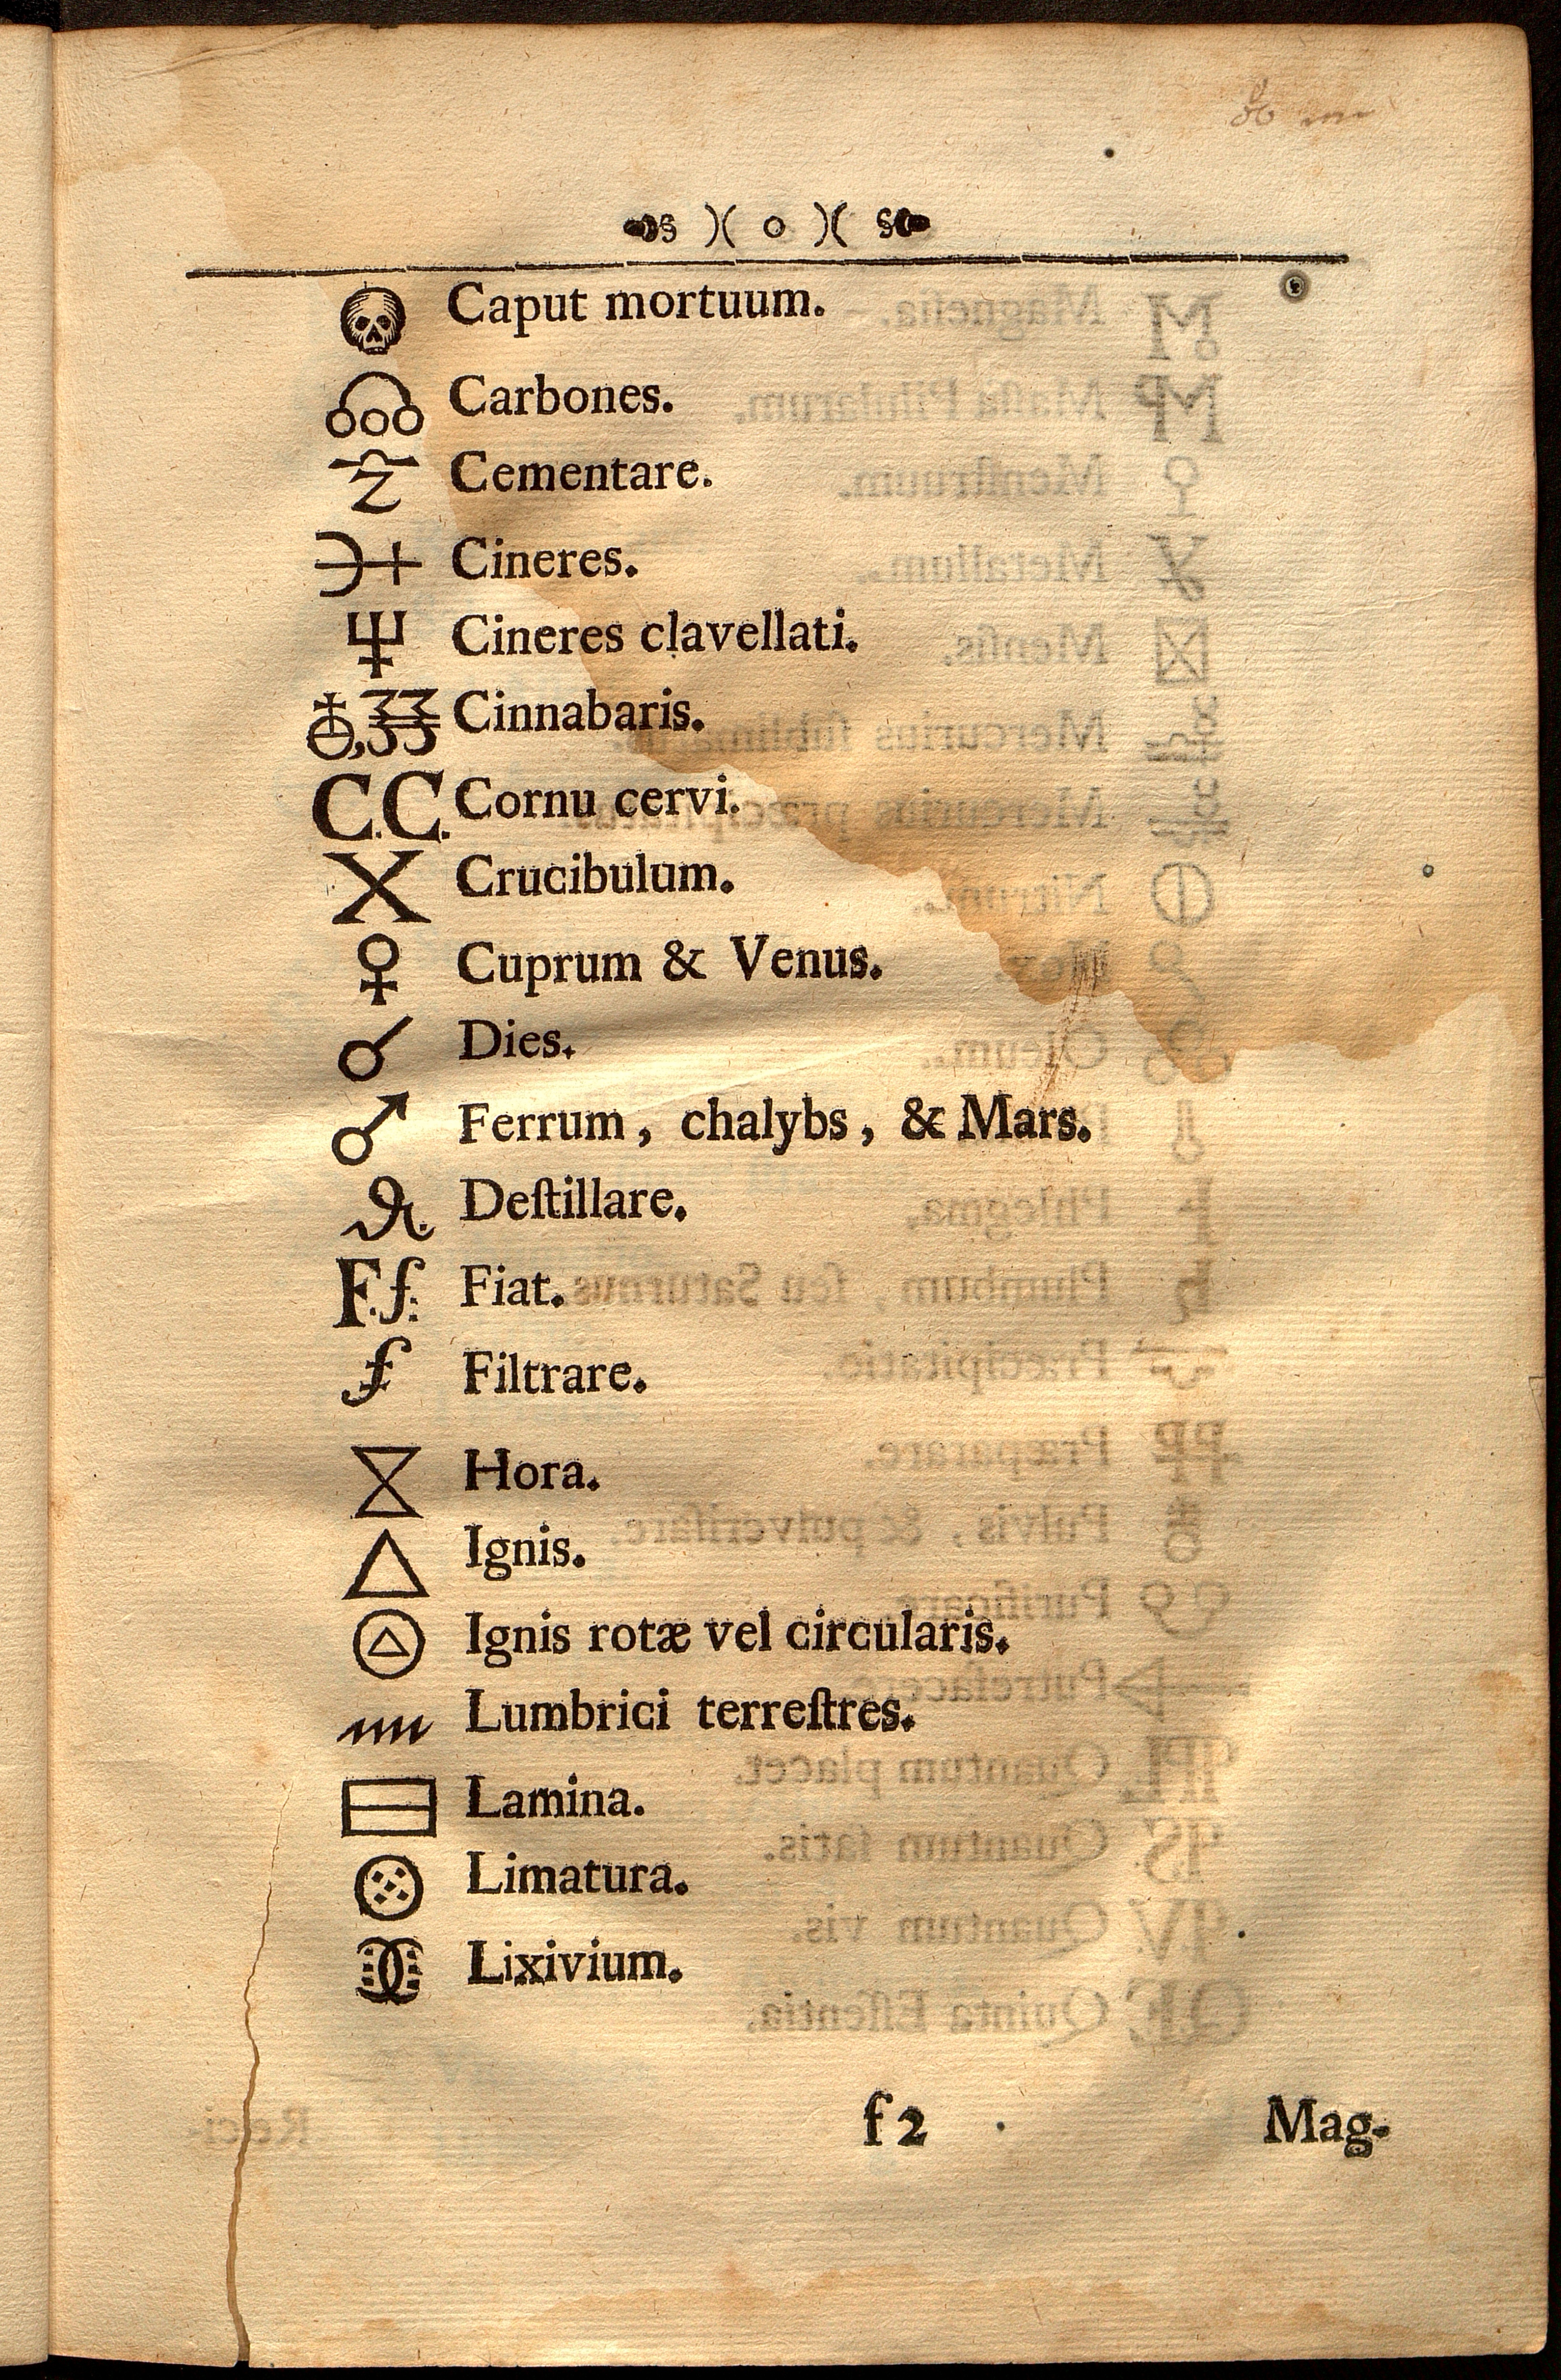 )( o )(
Caput mortuum.
Carbones.
Cementare.
Cineres.
Cineres clavellati.
Cinnabaris.
C.C. Cornu cervi.
X Crucibulum.
♀ Cuprum & Venus.
☌ Dies.
♂ Ferrum, chalybs, & Mars.
Deſtillare.
F.f: Fiat.
Filtrare.
Hora.
△ Ignis.
Ignis rotæ vel circularis.
Lumbrici terreſtres.
Lamina.
Limatura.
Lixivium.
f 2
Mag-